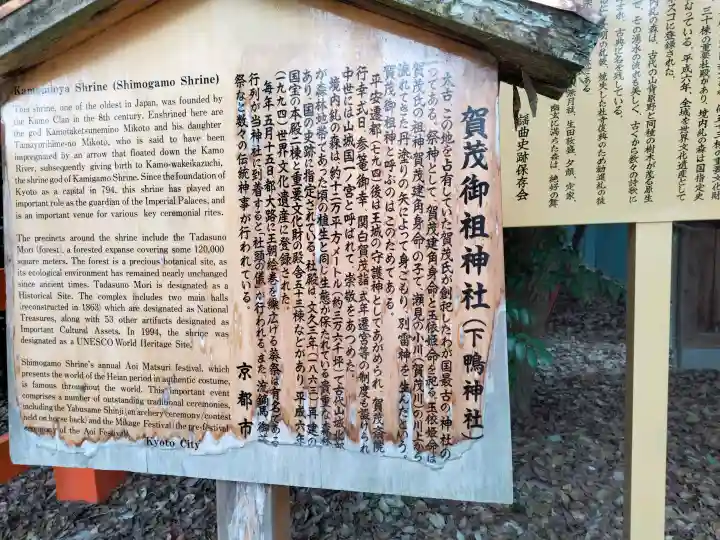 Kamomioya Shrine (Shimogamo Shrine)
This shrine, one of the oldest in Japan, was founded by
the Kamo Clan in the 8th century. Enshrined here are
the god Kamotaketsunemino Mikoto and his daughter
Tamayorihime-no Mikoto, who is said to have been
impregnated by an arrow that floated down the Kamo
River, subsequently giving birth to Kamo-wakeikazuchi,
the shrine god of Kamigamo Shrine. Since the foundation of
Kyoto as a capital in 794, this shrine has played an
important role as the guardian of the Imperial Palaces, and
is an important venue for various key ceremonial rites.
The precincts around the shrine include the Tadasuno
Mori (forest), a forested expanse covering some 120,000
square meters. The forest is a precious botanical site, as
its ecological environment has remained nearly unchanged
since ancient times. Tadasuno Mori is designated as a
Historical Site. The complex includes two main halls
(reconstructed in 1863) which are designated as National
Treasures, along with 53 other artifacts designated as
Important Cultural Assets. In 1994, the shrine was
designated as a UNESCO World Heritage Site.
Shimogamo Shrine's annual Aoi Matsuri festival, which
presents the world of the Heian period in authentic costume,
is famous throughout the world. This important event
comprises a number of outstanding traditional ceremonies,
including the Yabusame Shinji (an archery ceremony/contest
held on horse back) and the Mikage Festival (the pre-festival
ceremony of the Aoi Festival).
Kyoto City
賀茂御祖神社(下鴨神社)
太古、この地を占有していた賀茂氏が創祀したわが国最古の神社の
一つである。祭神として、賀茂建角身命と玉依姫命を祀る。玉依姫命は
賀茂氏の祖神賀茂建角身命の子で、瀬見の小川(賀茂川)の川上から
流れてきた丹塗りの矢によって身ごもり、別雷神を生んだという。
賀茂御祖神社と呼ぶのはこのためである。
平安遷都(七九四)後は王城の守護神としてあがめられ、賀茂斎院
行幸式日、参篭御幸、関白賀茂詣、式年遷宮等の制度が設けられ
中世には山城国一ノ宮と呼ばれ、崇敬をあつめた。
境内糺の森は、約十二万平方メートル(約三万六千坪)で古代山城北部
が森林地帯であった頃の植生と同じ生態が保たれている貴重な森林
であり、国の史跡に指定されている。社殿は文久三年(一八六三)再建の
国宝の本殿二棟と重要文化財の殿舎五十三棟などがあり、平成六年
(一九九四)世界文化遺産に登録された。
毎年、五月十五日都大路に王朝絵巻を繰広げる葵祭は有名である
行列が当神社に到着すると、社頭の儀が行われる。また、流鏑馬、御蔭
祭など数々の伝統神事が行われている。
京都市
三十棟の重要社殿があり、境内糺の森は国指定史
なっている。平成六年、全域を世界文化遺産として
スコに登録された。
糺の森は、古代の山背原野と同種の樹木が茂る原生
その湧水の流れも美しく、古くから数々の詩歌に
古典に名を残している。
謡曲史跡保存会